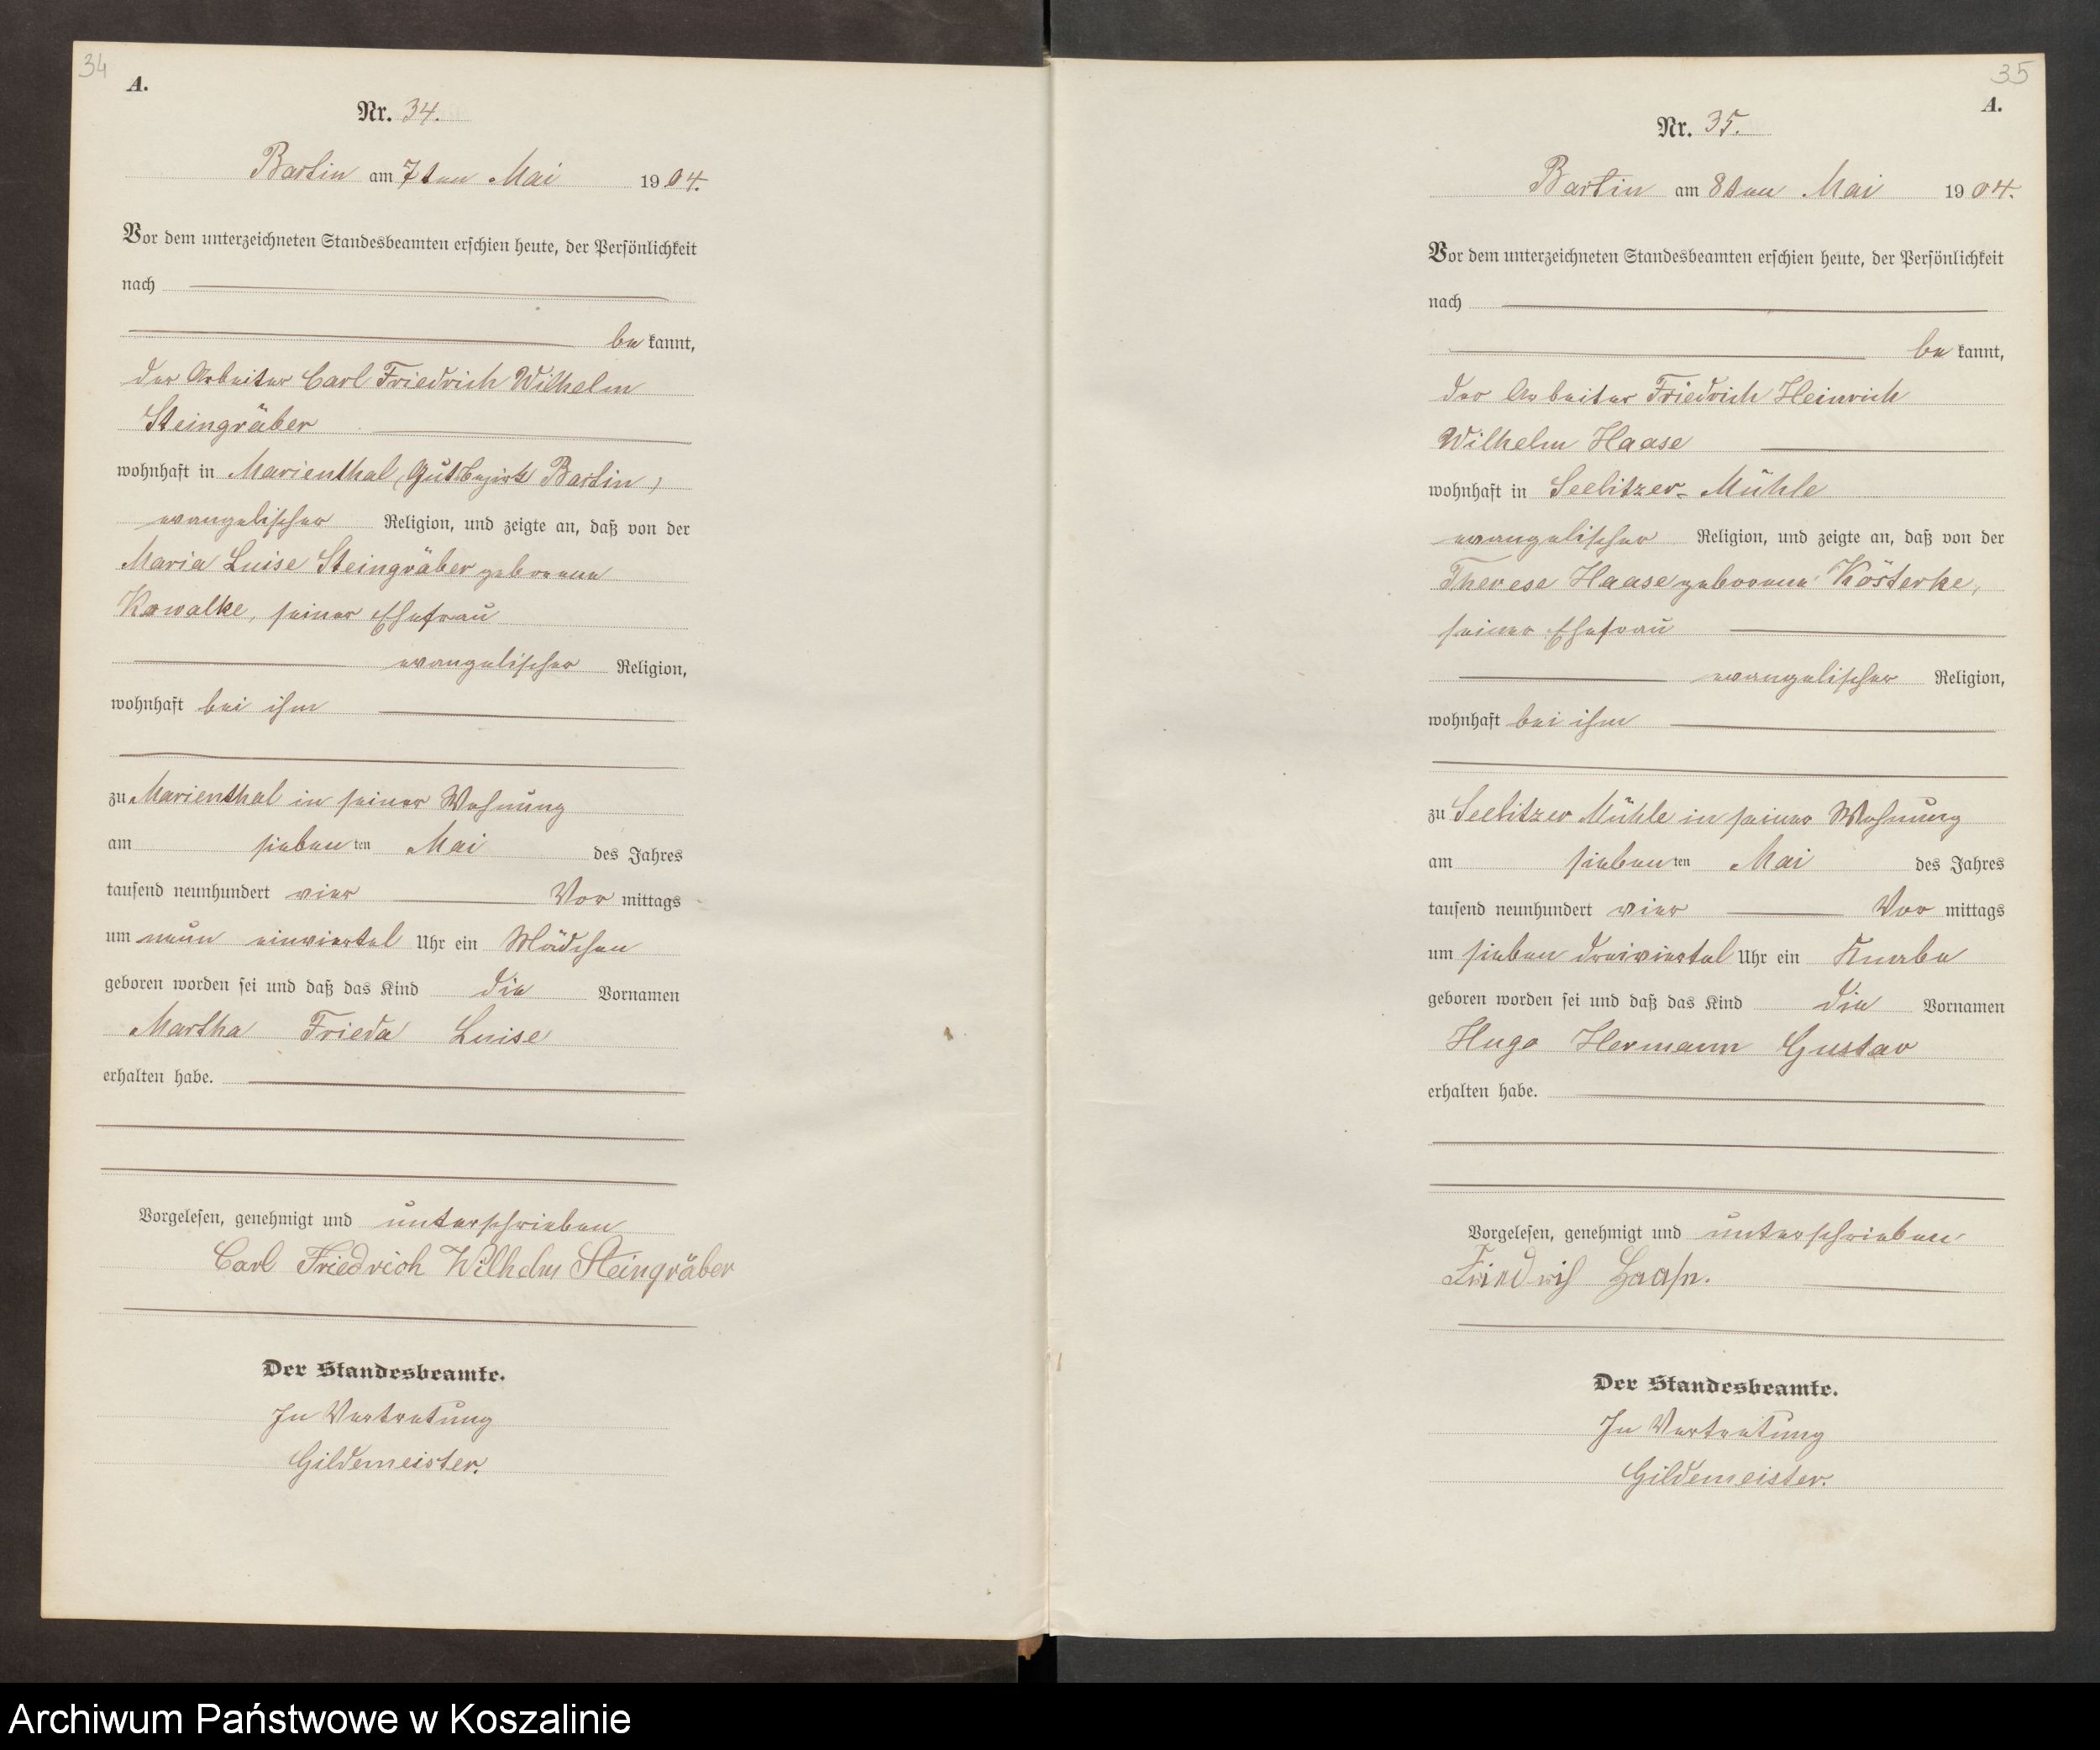 34
A.
Nr. 34.
Bartin am 7ten Mai 1904.
Vor dem unterzeichneten Standesbeamten erschien heute, der Persönlichkeit
nach
bekannt,
der Arbeiter Carl Friedrich Wilhelm
Steingräber
wohnhaft in Marienthal, Gutsbezirk Bartin,
evangelischer Religion, und zeigte an, daß von der
Maria Luise Steingräber geborene
Kowalke, seiner Ehefrau
evangelischer Religion,
wohnhaft bei ihm
zu Marienthal in seiner Wohnung
am siebenten Mai des Jahres
tausend neunhundert vier Vormittags
um neun einviertel Uhr ein Mädchen
geboren worden sei und daß das Kind die Vornamen
Martha Frieda Luise
erhalten habe.
Vorgelesen, genehmigt und unterschrieben
Carl Friedrich Wilhelm Steingräber
Der Standesbeamte.
In Vertretung
Gildemeister.
35
A.
Nr. 35.
Bartin am 8ten Mai 1904.
Vor dem unterzeichneten Standesbeamten erschien heute, der Persönlichkeit
nach
bekannt,
der Arbeiter Friedrich Heinrich
Wilhelm Haase
wohnhaft in Seelitzer-Mühle
evangelischer Religion, und zeigte an, daß von der
Therese Haase geborene Kösterke,
seiner Ehefrau
evangelischer Religion,
wohnhaft bei ihm
zu Seelitzer Mühle in seiner Wohnung
am siebenten Mai des Jahres
tausend neunhundert vier Vormittags
um sieben dreiviertel Uhr ein Knabe
geboren worden sei und daß das Kind die Vornamen
Hugo Hermann Gustav
erhalten habe.
Vorgelesen, genehmigt und unterschrieben
Friedrich Haase.
Der Standesbeamte.
In Vertretung
Gildemeister.
Archiwum Państwowe w Koszalinie